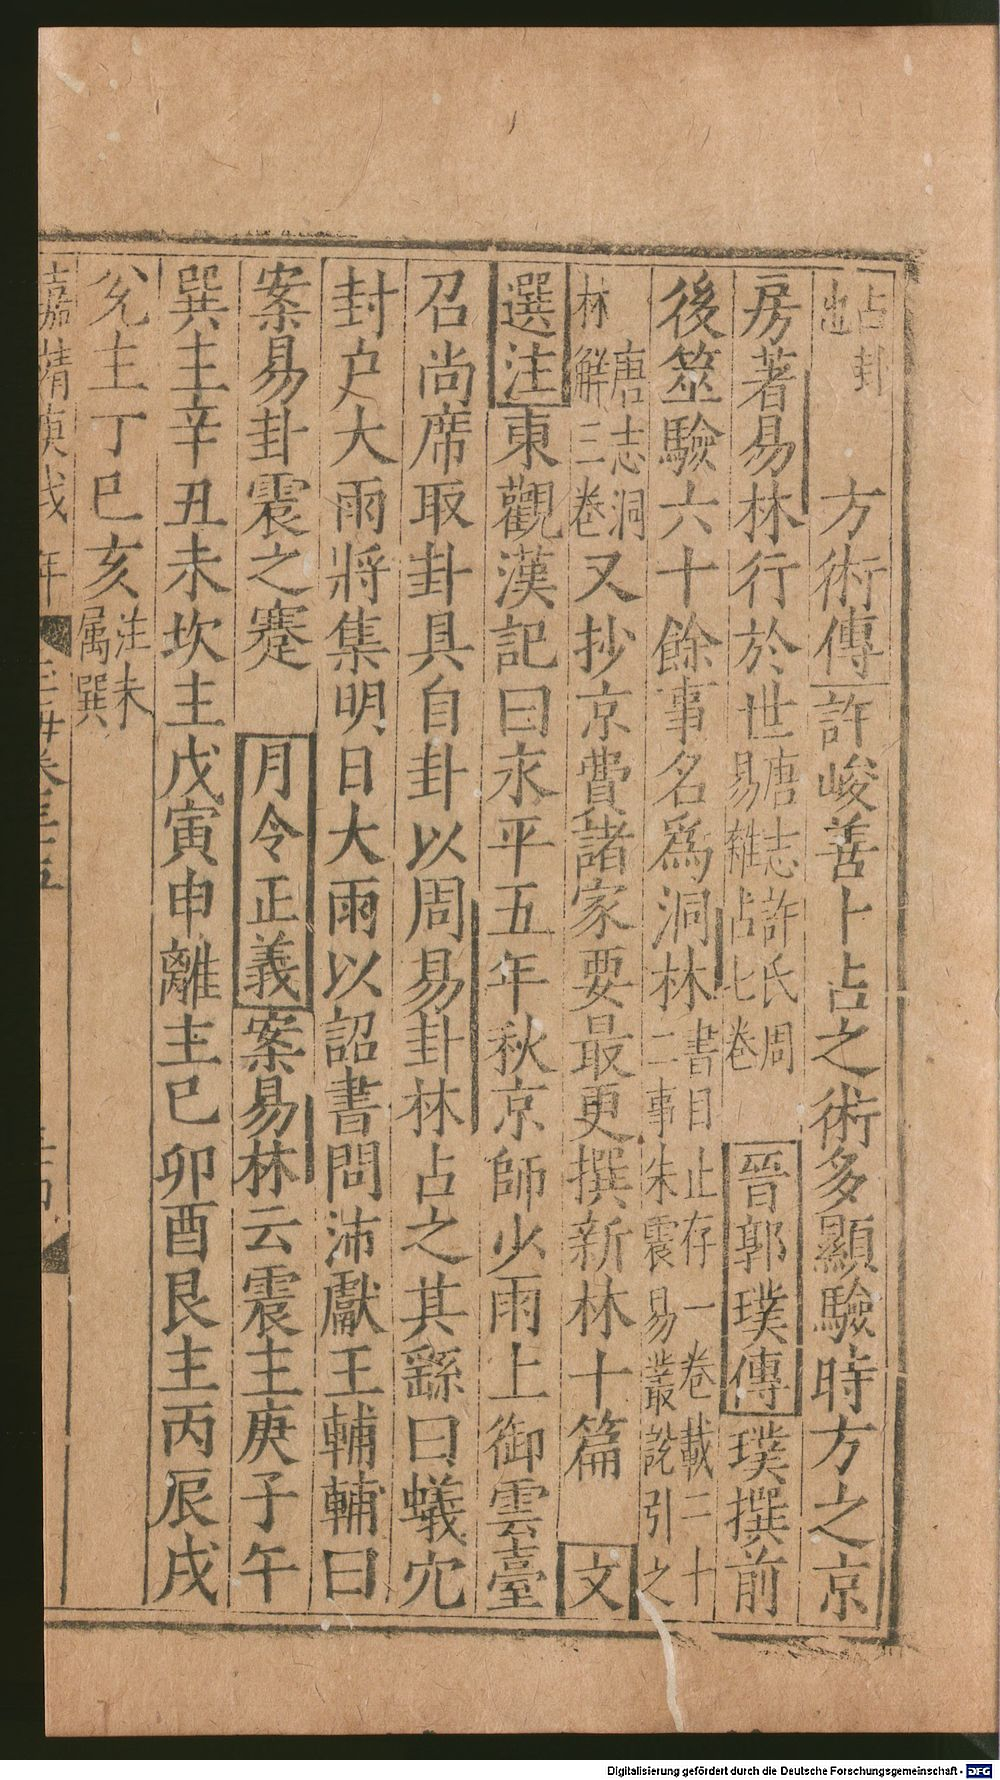 占卦出　方術傳許峻善卜占之術多顯驗時方之京
房著易林行於世唐志許氏周易雜占七卷　晉郭璞傳璞撰前
後筮驗六十餘事名爲洞林書目止存一卷載二十二事朱震易叢說引之
林　唐志洞林解三卷又抄京費諸家要最更撰新林十篇　文
選注東觀漢記曰永平五年秋京師少雨上御雲臺
召尚席取卦具自卦以周易卦林占之其繇曰蟻穴
封户大雨將集明日大雨以詔書問沛獻王輔輔曰
案易卦震之蹇　月令正義案易林云震主庚子午
巽主辛丑未坎主戊寅申離主巳卯酉艮主丙辰戌
兊主丁巳亥注未属巽
嘉靖
Digitalisierung gefördert durch die Deutsche Forschungsgemeinschaft - DFG